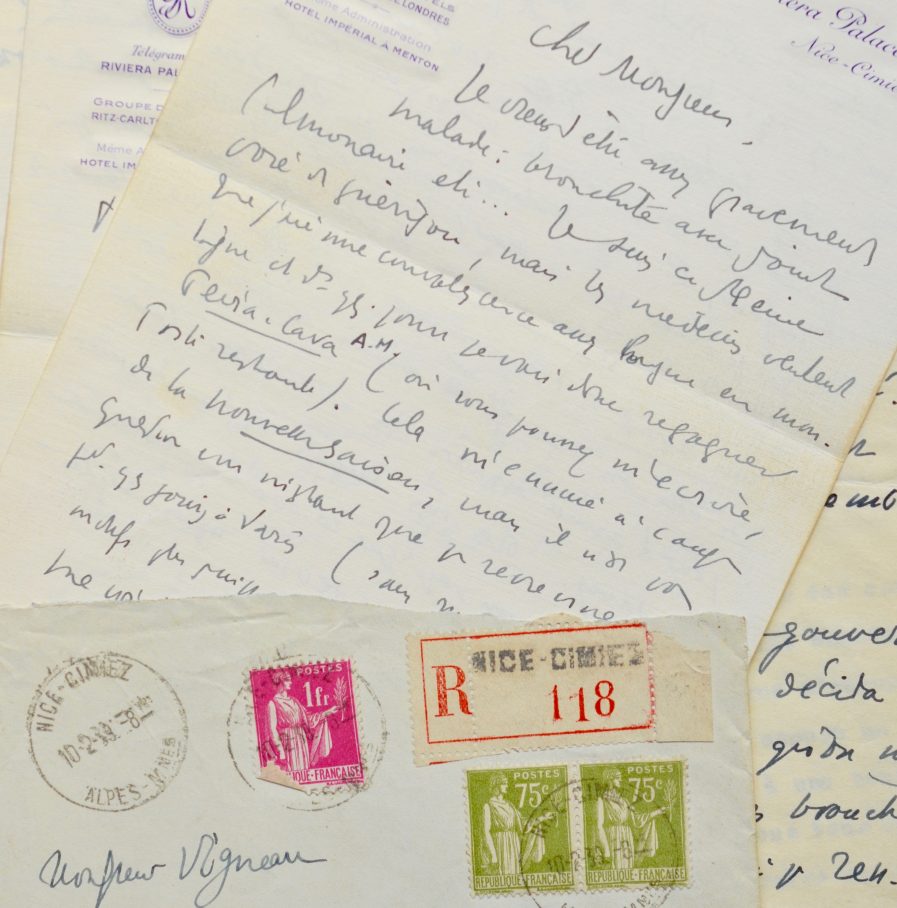 Télégram
RIVIERA PAL
GROUPE D
RITZ-CARLT
Même A
HOTEL IMP
LONDRES
Même Administration
HOTEL IMPÉRIAL À MENTON
iera Palace
Nice-Cimie
Cher Monsieur,
Je viens d'être assez gravement
malade : bronchite avec point
pulmonaire etc... Je suis en pleine
voie de guérison, mais les médecins veulent
que j'aie une convalescence assez longue en mon.
ligne et
je vais donc regagner
Peïra-Cava A.M. (où vous pouvez m'écrire,
Poste restante). Cela m'ennuie à cause
de la nouvelle saison, mais il n'est pas
question un instant que je revienne
à Paris (sauf
motifs plus puiss
gouver
décida
bronch
NICE-CIMIEZ
10-2-39
ALPES-MMES
POSTES
1fr
QUE-FRANÇAISE
R NICE-CIMIEZ
118
POSTES
75c
REPUBLIQUE-FRANÇAISE
POSTES
75c
REPUBLIQUE-FRANÇAISE
Monsieur Vigneau